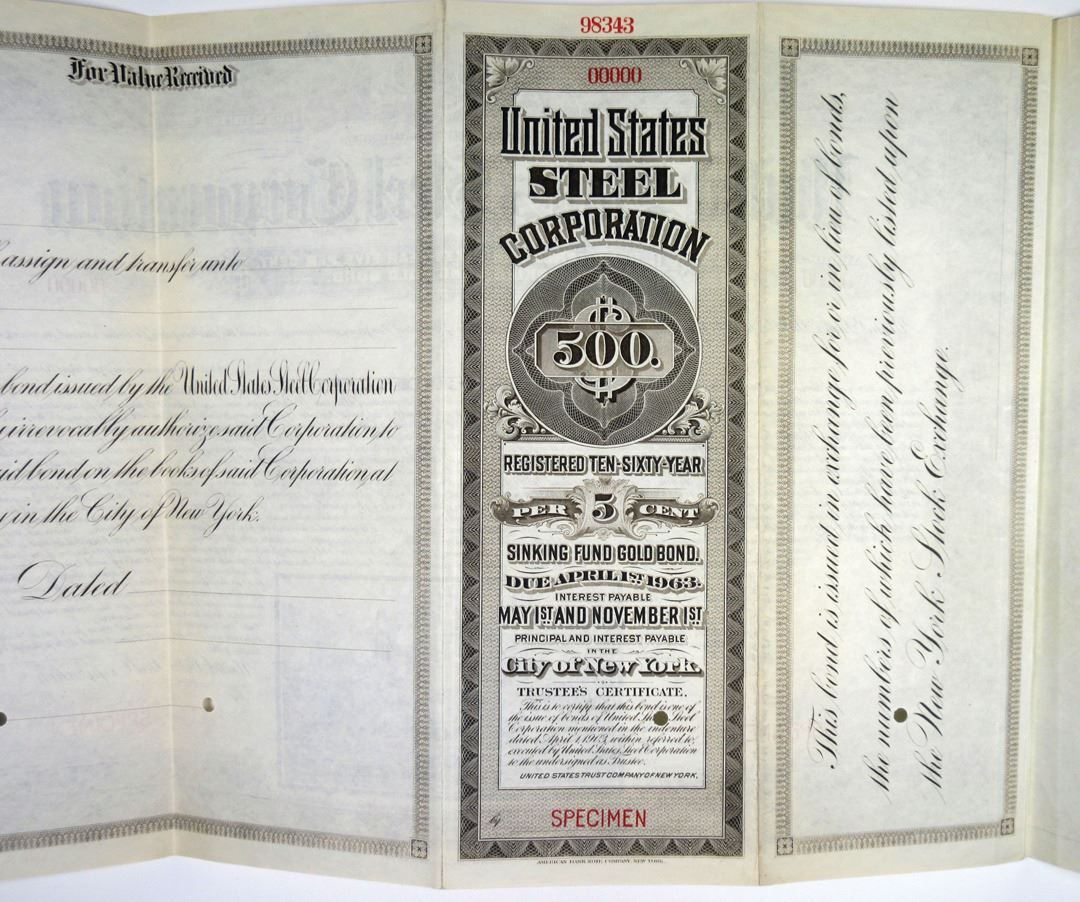 For Value Received
assign and transfer unto
bond issued by the United States Steel Corporation
irrevocably authorize said Corporation to
bond on the books of said Corporation, at
in the City of New York.
Dated
98343
00000
United States
STEEL
CORPORATION
$
500.
REGISTERED TEN-SIXTY-YEAR
PER 5 CENT
SINKING FUND GOLD BOND.
DUE APRIL 1ST 1963.
INTEREST PAYABLE
MAY 1ST AND NOVEMBER 1ST
PRINCIPAL AND INTEREST PAYABLE
IN THE
City of New York.
TRUSTEE'S CERTIFICATE.
This is to certify that this bond is one of
the issue of bonds of United Steel
Corporation mentioned in the indenture
dated April 1, 1903, within referred to,
executed by United States Steel Corporation
to the undersigned as Trustee.
UNITED STATES TRUST COMPANY OF NEW YORK,
by
SPECIMEN
AMERICAN BANK NOTE COMPANY, NEW YORK.
This bond is issued in exchange for or in lieu of bonds,
the numbers of which have been previously listed upon
the New York Stock Exchange.